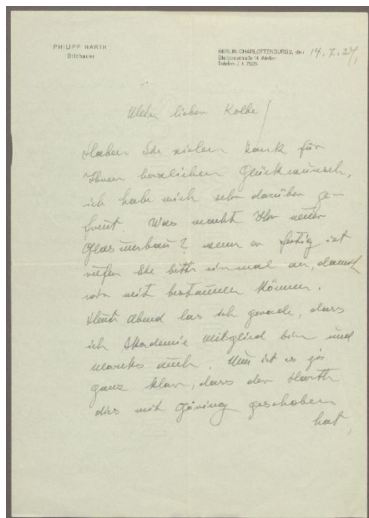 PHILIPP HARTH
Bildhauer
BERLIN-CHARLOTTENBURG 2, den 14.7.37,
Mein lieber Kolbe!
Haben Sie vielen Dank für
Ihren herzlichen Glückwunsch,
ich habe mich sehr darüber ge-
freut. Was macht Ihr neuer
wenn er fertig ist
rufen Sie bitte einmal an, damit
wir mit bestaunen können.
Heute Abend las ich gerade, dass
ich Akademie mitglied bin und
Marcks auch. Nun ist es ja
ganz klar, dass der Harth
das mit Göring geschoben
hat,